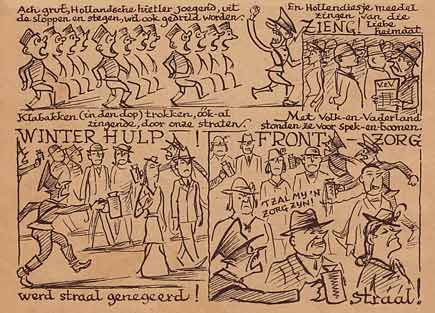 Ach grut, Hollandsche hietler joegend, uit
de sloppen en stegen, wil ook gedrild worden.
En Hollendiesje meedel
zingen van die
liebe
heimaat.
ZIENG!
V.E.V
Klabakken (in den dop) trokken, óók al
zingende, door onze straten.
Met Volk-en-Vaderland
stonden ze voor Spek-en-boonen.
WINTER HULP!
werd straal genegeerd!
FRONT - ZORG
'T ZAL MY 'N
ZORG ZYN!
Straal!